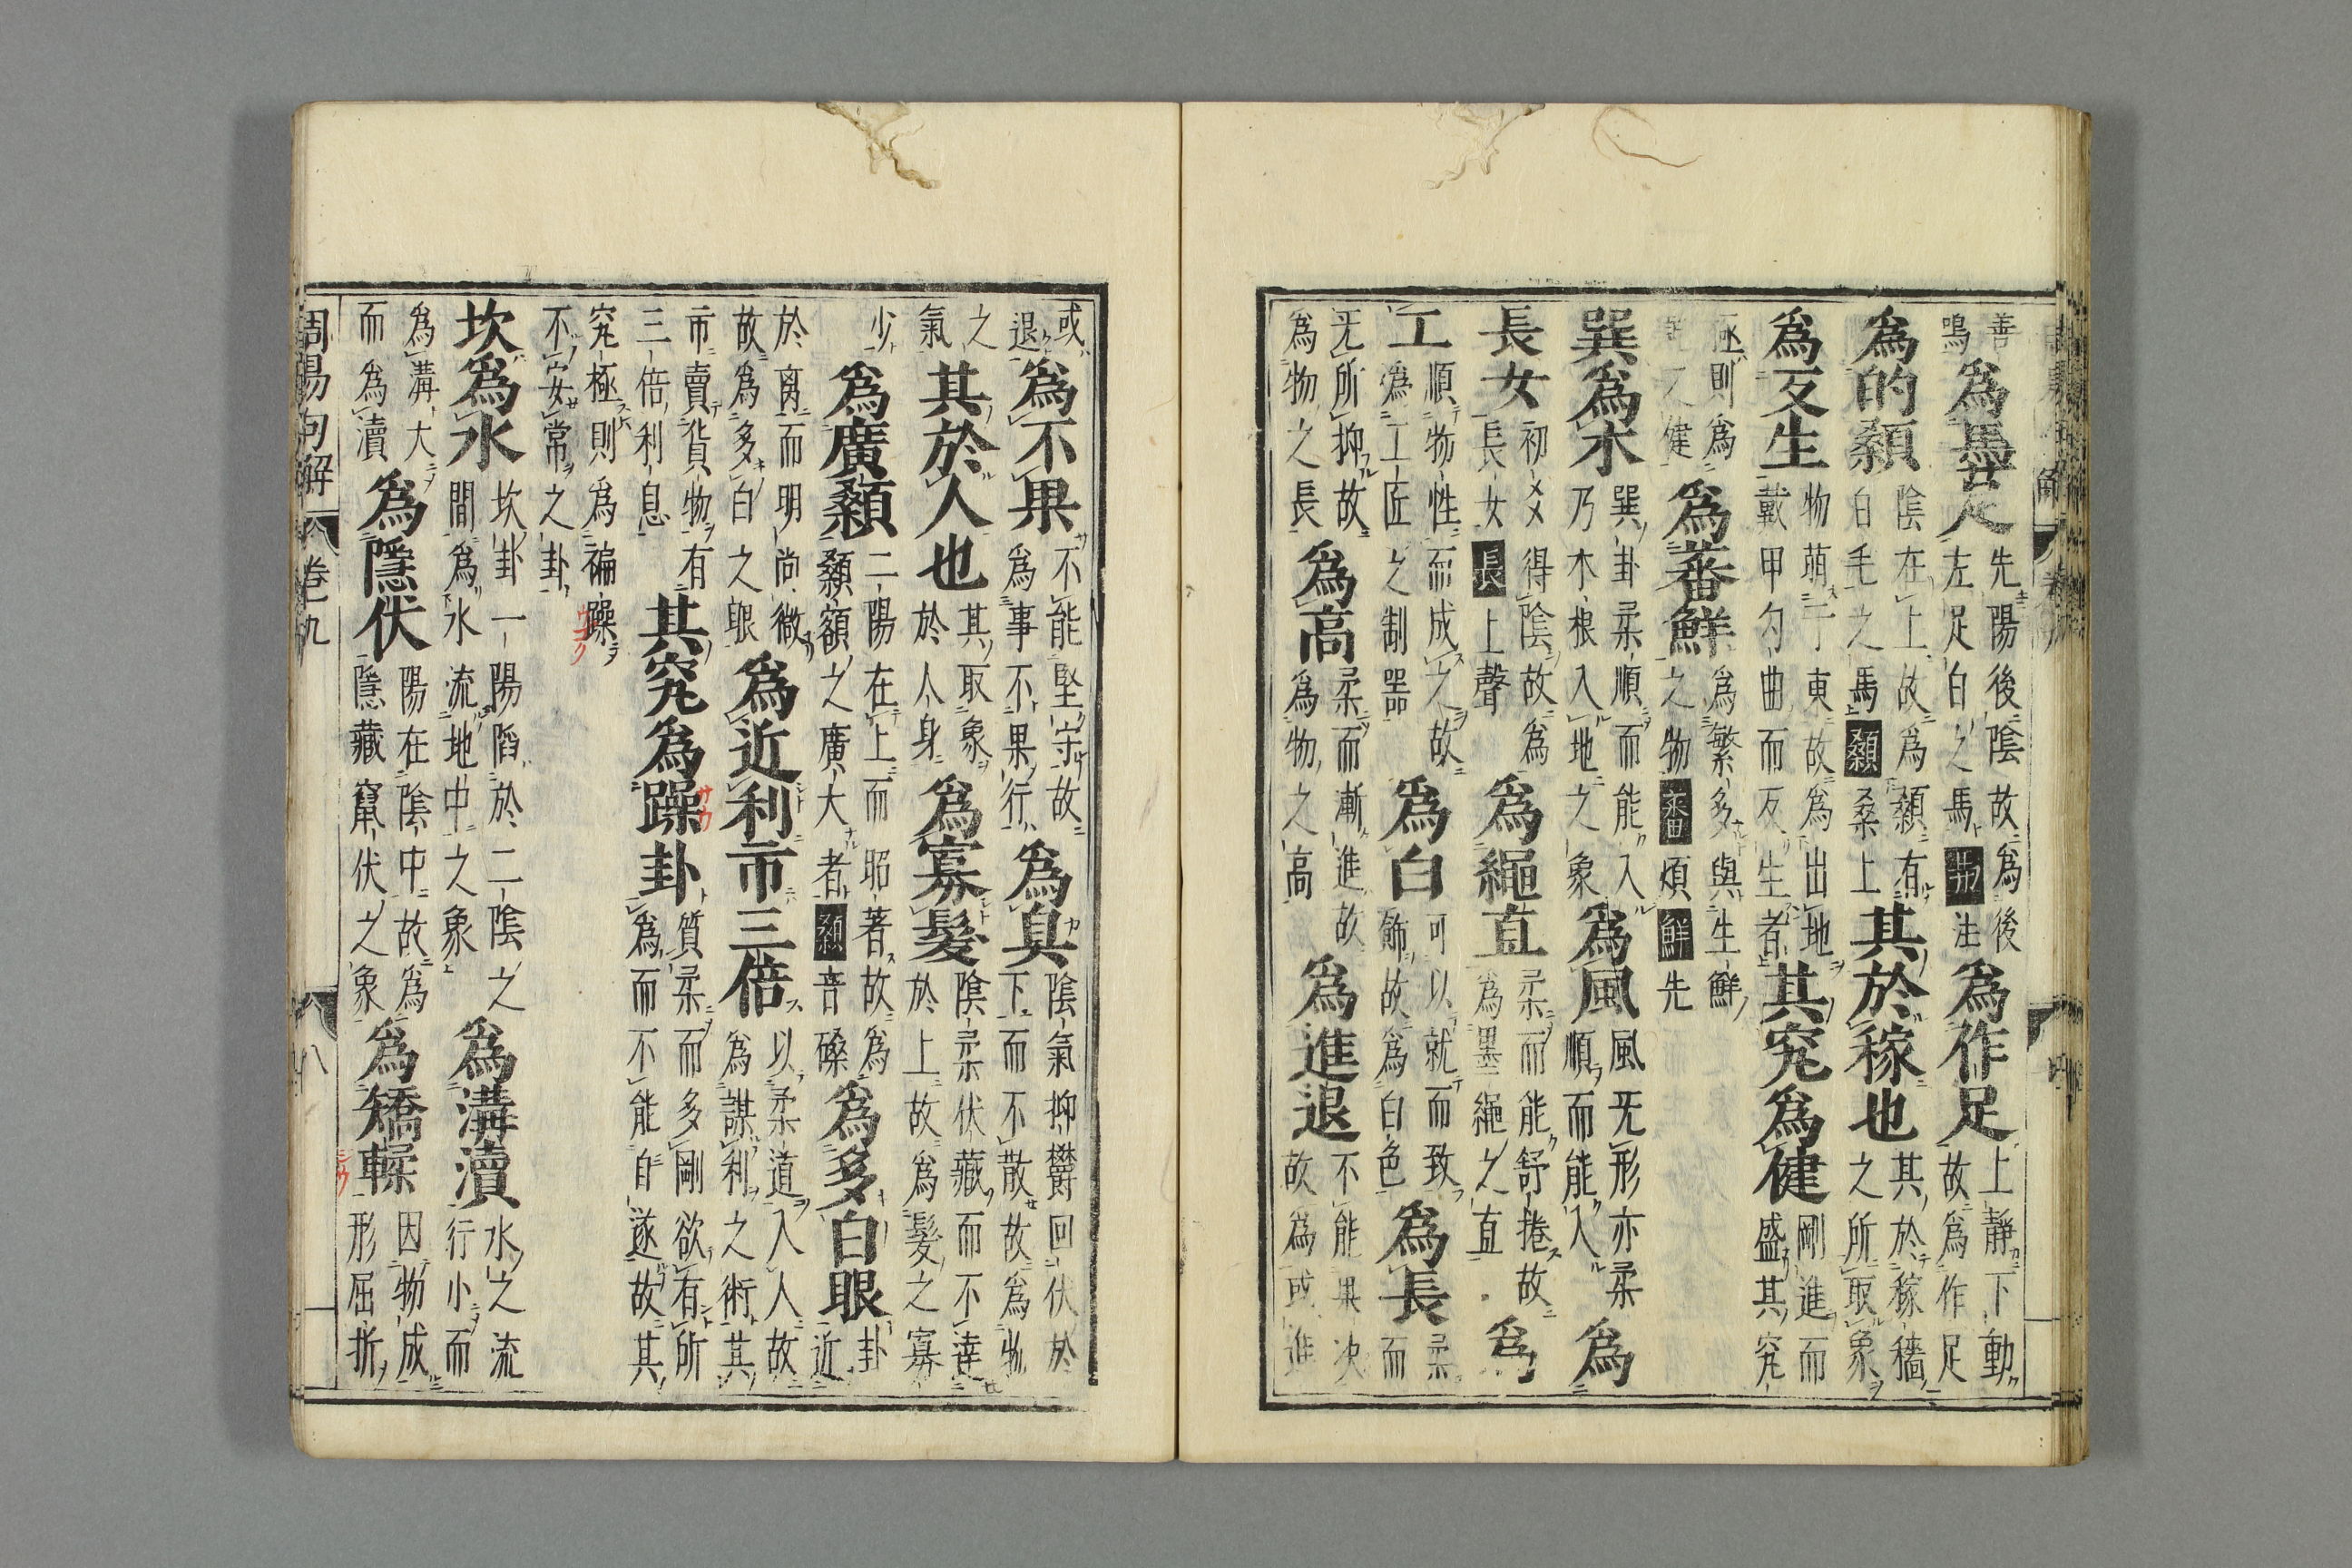 善鳴爲馵足先陽後陰故爲後左足白之馬馵注爲作足上靜下動故爲作足
爲的顙陰在上故爲顙有白毛之馬顙桑上其於稼也其於稼穡之所取象
爲反生物萌于東故爲出地戴甲勾曲而反生者其究爲健剛進而盛其究
極則爲之健爲蕃鮮爲繁多與生鮮之物蕃煩鮮先
巽爲木巽卦柔順而能入乃木根入地之象爲風風无形亦柔順而能入爲
長女初爻得陰故爲長女長上聲爲繩直柔而能舒捲故爲墨繩之直爲
工順物性而成之故爲工匠之制器爲白可以就而致飾故爲白色爲長柔而
无所抑故爲物之長爲高柔而漸進故爲物之高爲進退不能果决故爲或進
或退爲不果不能堅守故爲事不果行爲臭陰氣抑欝回伏於下而不散故爲物
之氣其於人也其取象於人身爲寡髮陰柔伏藏而不達於上故爲髮之寡
少爲廣顙二陽在上而昭著故爲顙額之廣大者顙音磉爲多白眼卦近
於离而明尚微故爲多白之眼爲近利市三倍以柔道入人故爲謀利之術其
市賣貨物有三倍利息其究爲躁卦質柔而多剛欲有所爲而不能自遂故其
究極則爲褊躁不安常之卦
坎爲水坎卦一陽陷於二陰之間爲水流地中之象爲溝瀆水之流行小而
爲溝大而爲瀆爲隱伏陽在陰中故爲隱藏竄伏之象爲矯輮因物成形屈折
周易句解 卷九 八